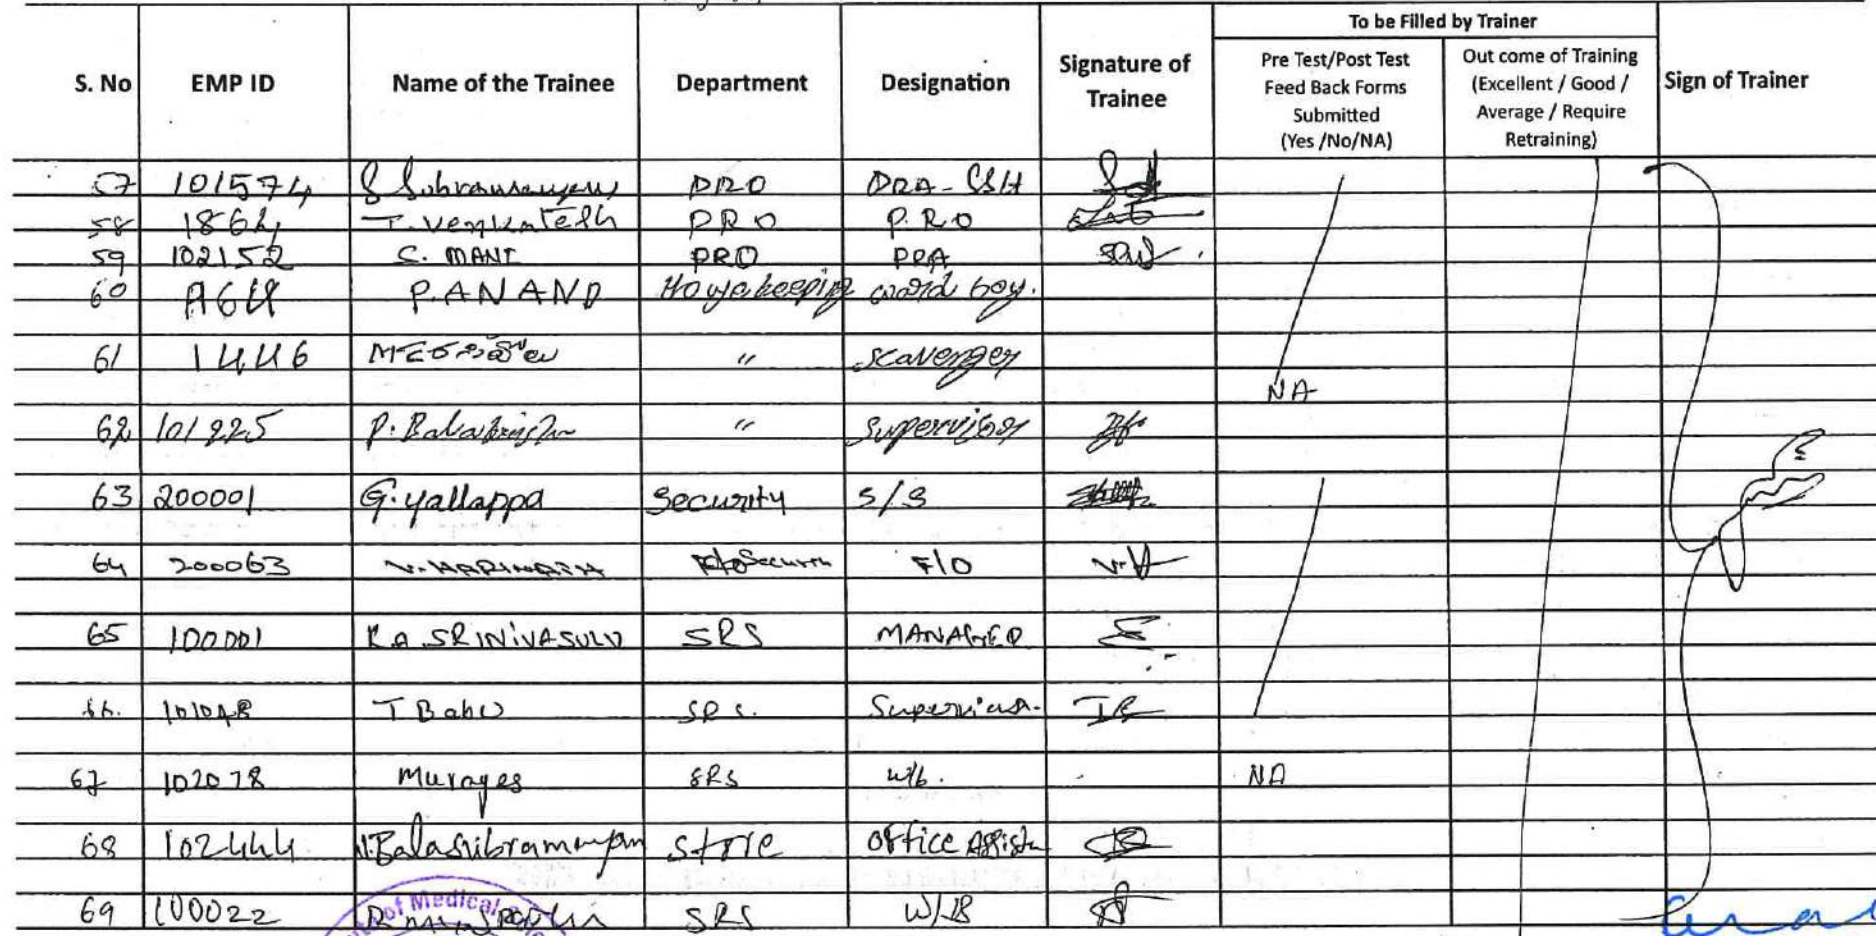 To be Filled by Trainer
S. No EMP ID Name of the Trainee Department Designation Signature of Trainee Pre Test/Post Test Feed Back Forms Submitted (Yes /No/NA) Out come of Training (Excellent / Good / Average / Require Retraining) Sign of Trainer
57 101574 PRO
58 1864 T. Venkatesh PRO P.R.O
59 102152 C. MANI PRO PRA
60 P. ANAND Housekeeping ward boy.
61 1446 " scavenger
NA
62 101225 P. Balakrishn " Supervisor
63 200001 G. yallappa Security S/S
64 200063 V. HARINATH Security F/O V.H
65 100001 K.A SRINIVASULU SRS MANAGER
66. 101048 T Babu SRS. Supervisor
67 102078 Murages SRS w/b. NA
68 102444 Balasubramanyam Store Office Assist
69 100022 SRS W/B
of Medical